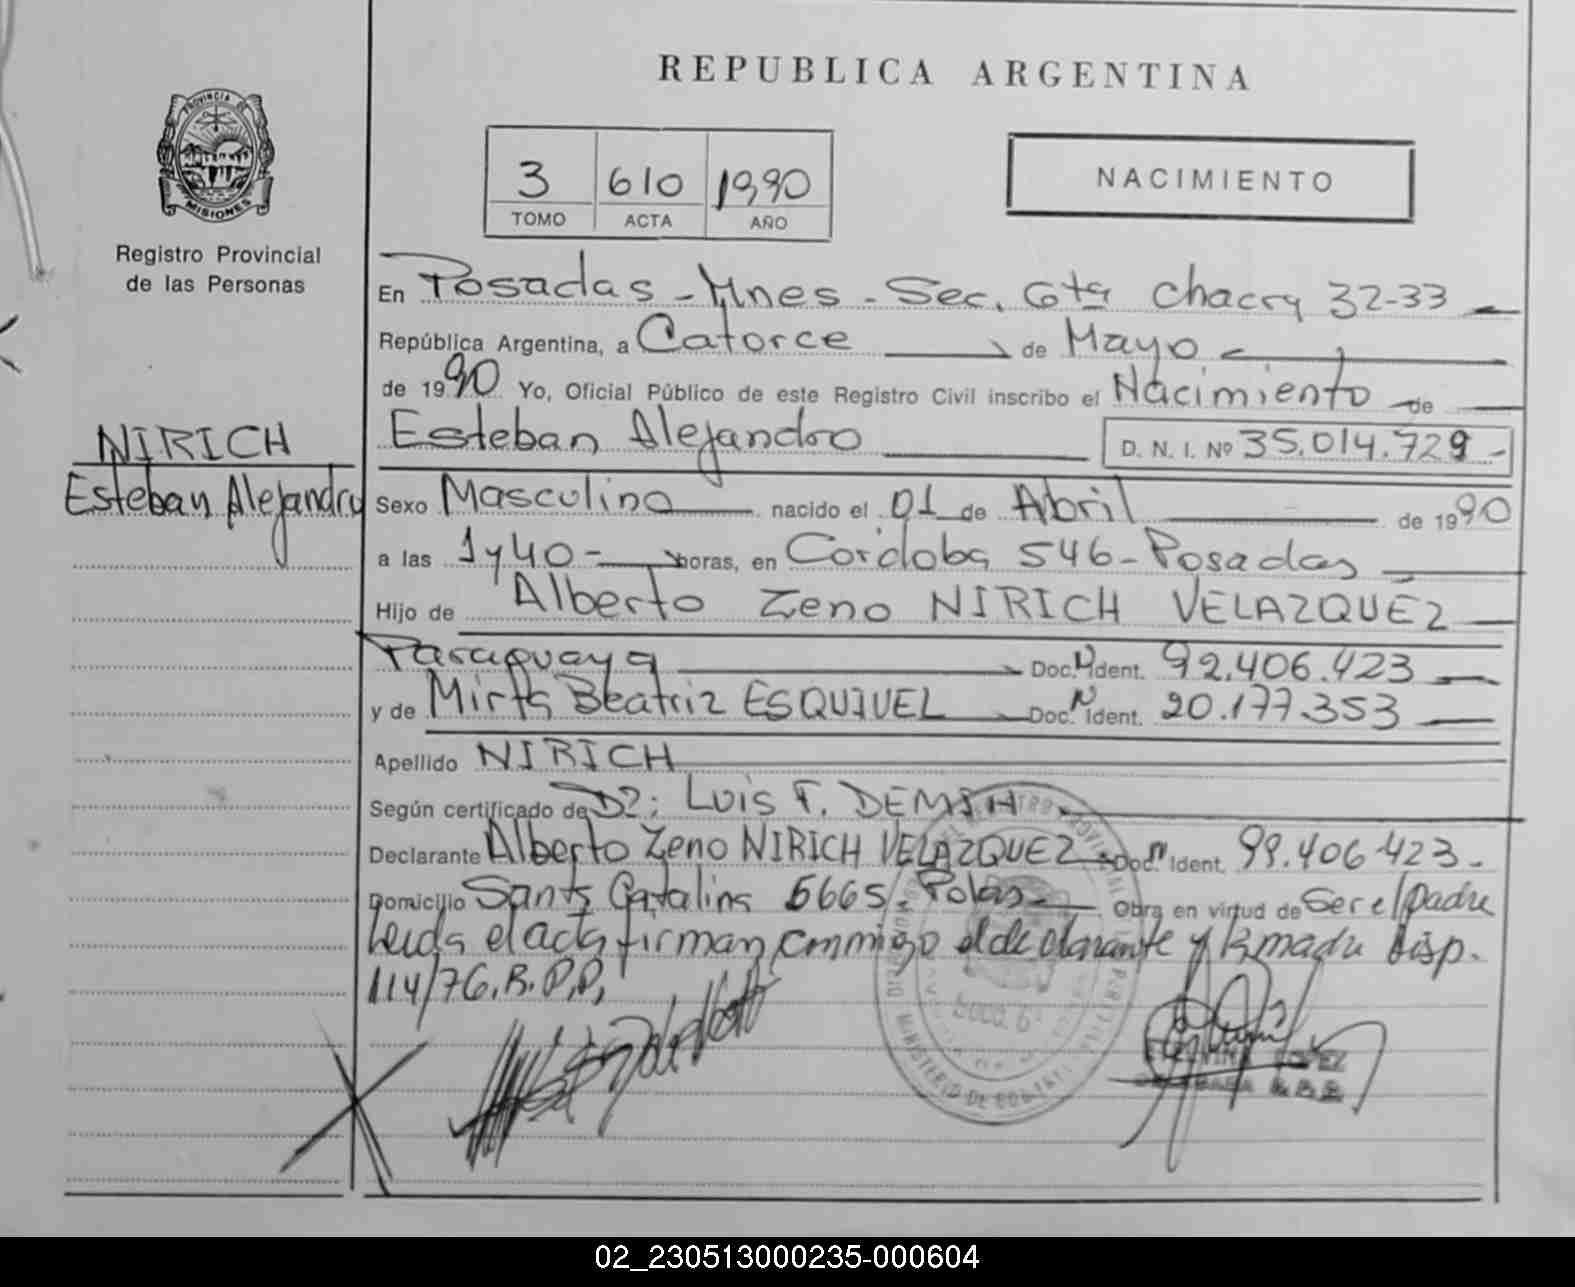 REPUBLICA ARGENTINA
PROVINCIA DE
MISIONES
Registro Provincial
de las Personas
3 610 1990
TOMO ACTA AÑO
NACIMIENTO
En Posadas - Mnes - Sec. 6ta Chacra 32-33
República Argentina, a Catorce de Mayo
de 1990 Yo, Oficial Público de este Registro Civil inscribo el Nacimiento de
NIRICH
Esteban Alejandro
Esteban Alejandro D. N. I. Nº 35.014.729 -
Sexo Masculino nacido el 01 de Abril de 1990
a las 1 y 40 - horas, en Cordoba 546 - Posadas
Hijo de Alberto Zeno NIRICH VELAZQUEZ
Paraguaya Doc. N Ident. 92.406.423
y de Mirta Beatriz ESQUIVEL Doc. N Ident. 20.177.353
Apellido NIRICH
Según certificado de Luis F.
Declarante Alberto Zeno NIRICH VELAZQUEZ - Doc. N Ident. 99.406.423 -
Domicilio Santa Catalina 5665 - Obra en virtud de Ser el padre
Leida el acta firman conmigo el declarante y la madre Disp.
114/76. R.P.P.
MINISTERIO DE
LOPEZ
02_230513000235-000604